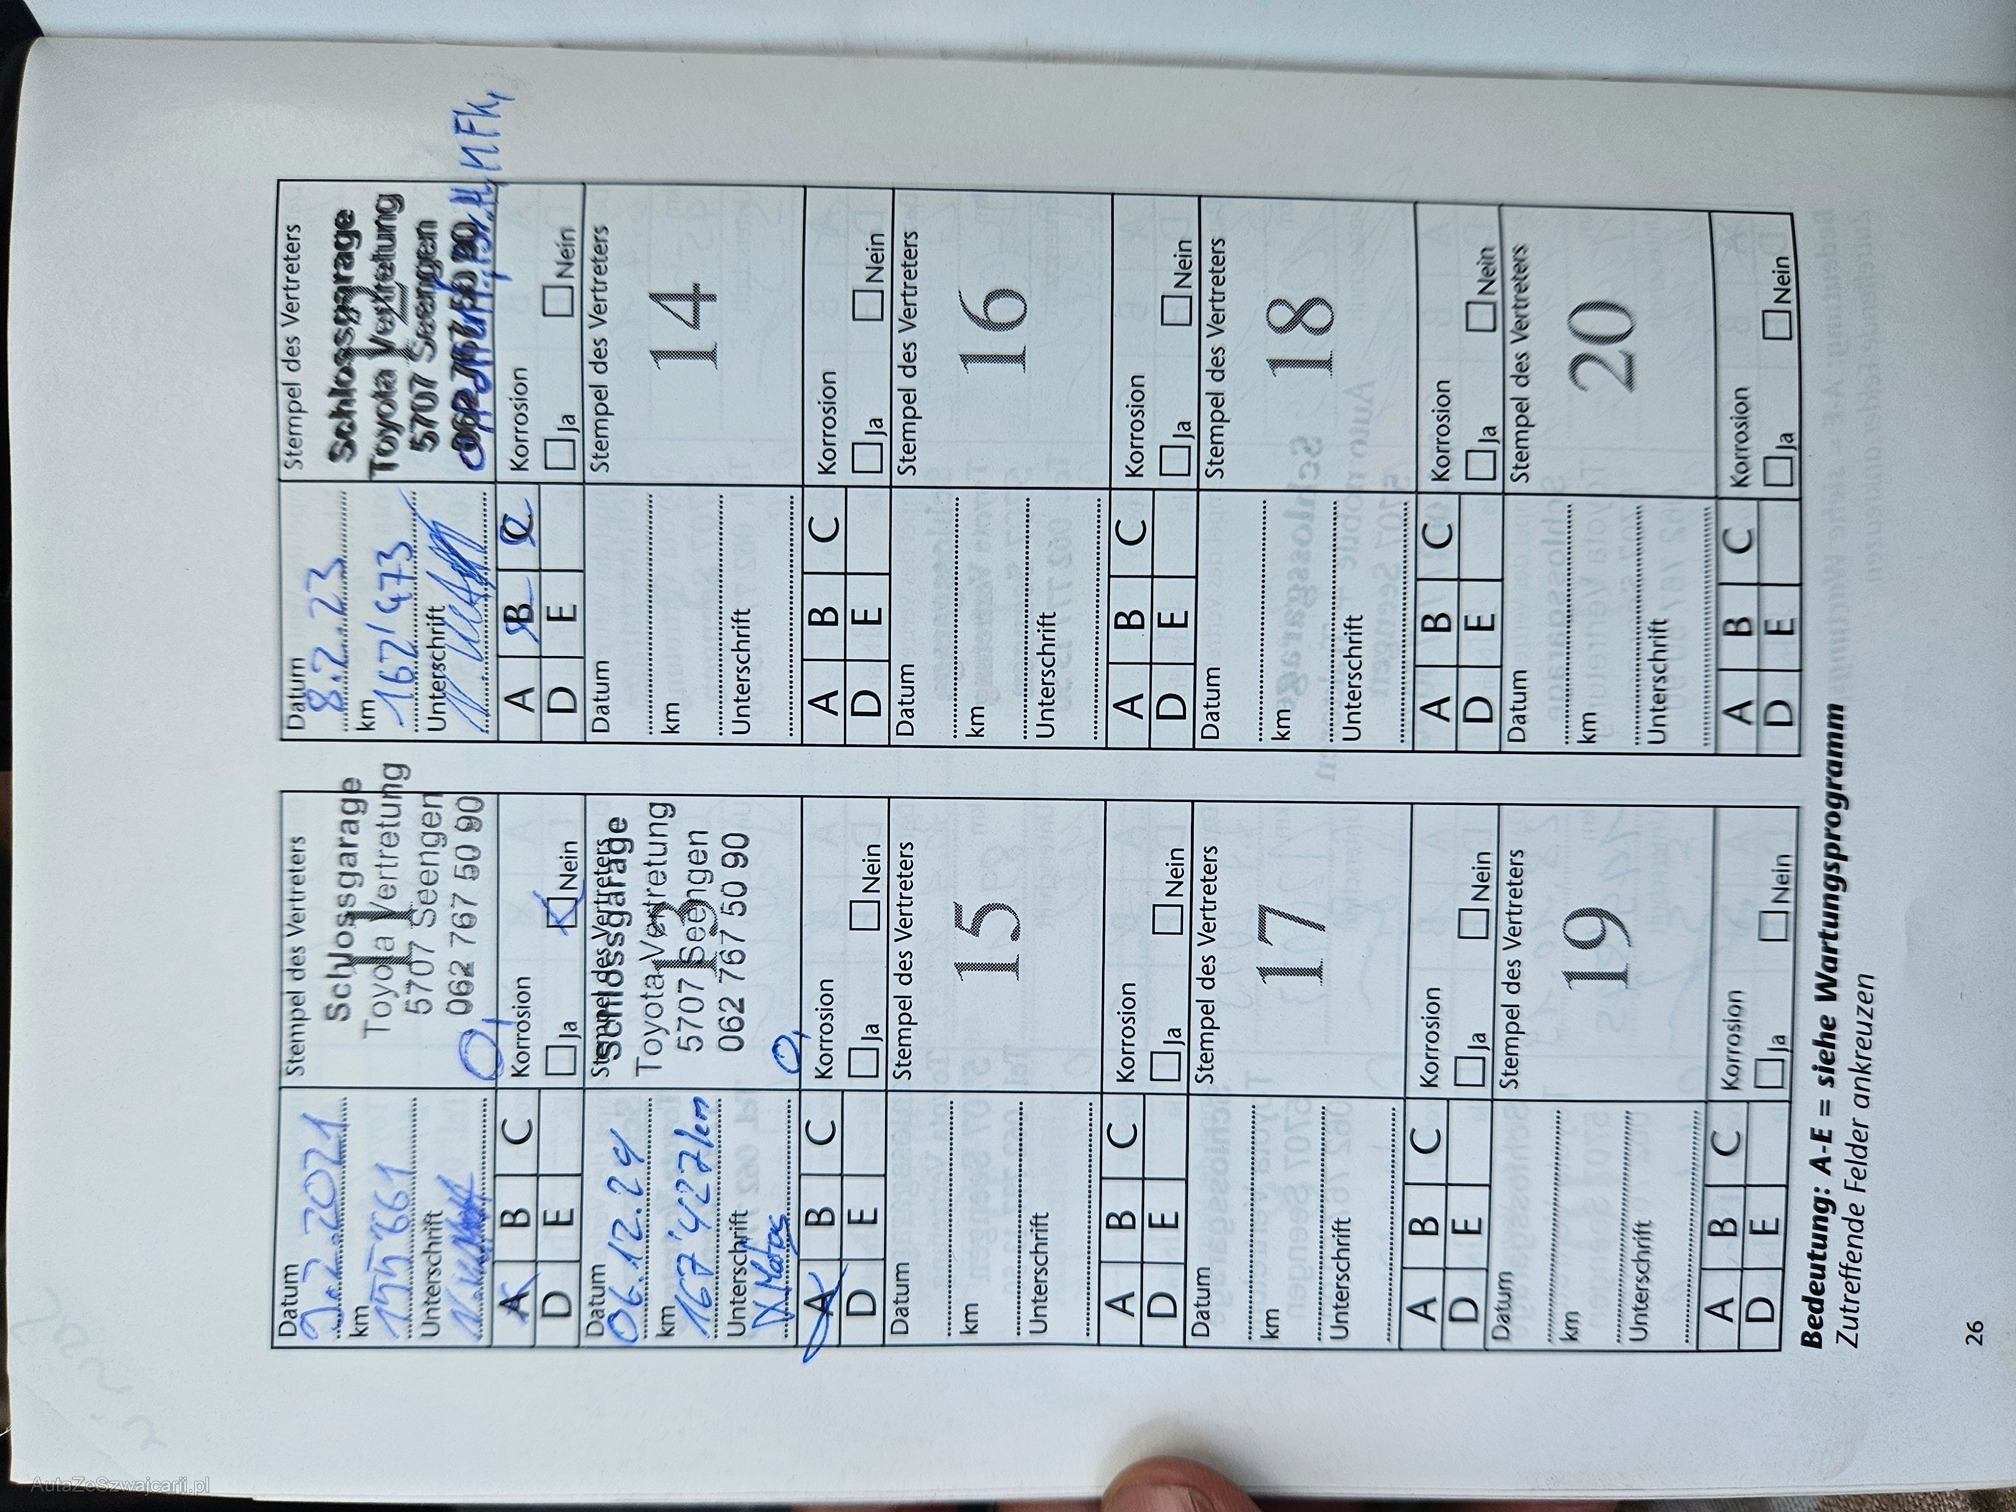 Datum
9.2.2021
km
155'661
Unterschrift
Stempel des Vertreters
11
Schlossgarage
Toyota Vertretung
5707 Seengen
062 767 50 90
A B C
D E
Korrosion
Ja Nein
Datum
8.2.23
km
162'473
Unterschrift
Stempel des Vertreters
Schlossgarage
Toyota Vertretung
5707 Seengen
062 767 50 90
A B C
D E
Korrosion
Ja Nein
Datum
06.12.24
km
167'427km
Unterschrift
Stempel des Vertreters
13
Schlossgarage
Toyota Vertretung
5707 Seengen
062 767 50 90
A B C
D E
Korrosion
Ja Nein
Datum
km
Unterschrift
Stempel des Vertreters
14
A B C
D E
Korrosion
Ja Nein
Datum
km
Unterschrift
Stempel des Vertreters
15
A B C
D E
Korrosion
Ja Nein
Datum
km
Unterschrift
Stempel des Vertreters
16
A B C
D E
Korrosion
Ja Nein
Datum
km
Unterschrift
Stempel des Vertreters
17
A B C
D E
Korrosion
Ja Nein
Datum
km
Unterschrift
Stempel des Vertreters
18
A B C
D E
Korrosion
Ja Nein
Datum
km
Unterschrift
Stempel des Vertreters
19
A B C
D E
Korrosion
Ja Nein
Datum
km
Unterschrift
Stempel des Vertreters
20
A B C
D E
Korrosion
Ja Nein
Bedeutung: A-E = siehe Wartungsprogramm
Zutreffende Felder ankreuzen
26
AutaZeSzwajcarii.pl